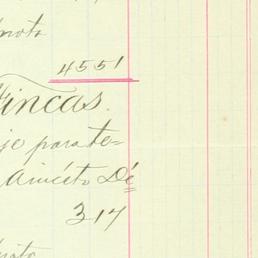 4551
Fincas.
jo para te-
Aniceto Dé
317